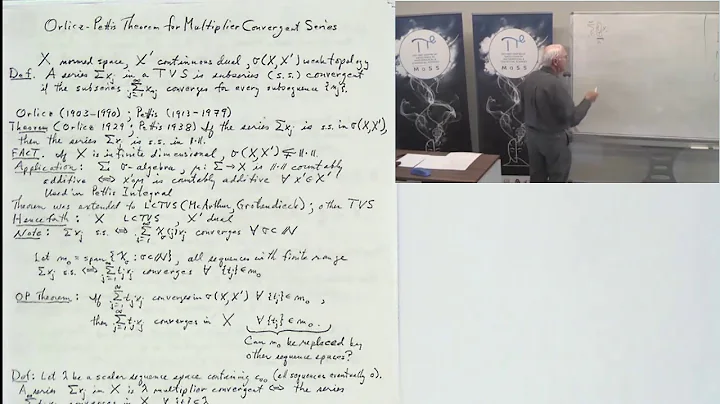 Orlicz-Pettis Theorem for Multiplier Convergent Series
X normed space, X' continuous dual, σ(X, X') weak topology
Def. A series Σxj in a TVS is subseries (s.s.) convergent
if the subseries Σ_{j=1}^∞ x_{nj} converges for every subsequence {nj}.
Orlicz (1903-1990); Pettis (1913-1979)
Theorem (Orlicz 1929; Pettis 1938) If the series Σxj is s.s. in σ(X,X'),
then the series Σxj is s.s. in ||·||.
FACT. If X is infinite dimensional, σ(X,X') ⊊ ||·||.
Application: Σ σ-algebra, μ: Σ→X is ||·|| countably
additive ⟺ x'μ is countably additive ∀ x' ∈ X'
Used in Pettis Integral
Theorem was extended to LCTVS (McArthur, Grothendieck); other TVS
Henceforth: X LCTVS, X' dual
Note: Σxj s.s. ⟺ Σ_{j=1}^∞ χ_σ(j)xj converges ∀ σ⊂ℕ
Let m0 = span{χ_σ : σ⊂ℕ}, all sequences with finite range
Σxj s.s. ⟺ Σ_{j=1}^∞ tjxj converges ∀ {tj} ∈ m0
OP Theorem: If Σ_{j=1}^∞ tjxj converges in σ(X,X') ∀ {tj} ∈ m0,
then Σ_{j=1}^∞ tjxj converges in X ∀ {tj} ∈ m0.
Can m0 be replaced by
other sequence spaces?
Def: Let λ be a scalar sequence space containing c00 (all sequences eventually 0).
A series Σxj in X is λ multiplier convergent ⟺ the series
converges in X ∀ {tj} ∈ λ
MASS
MASS